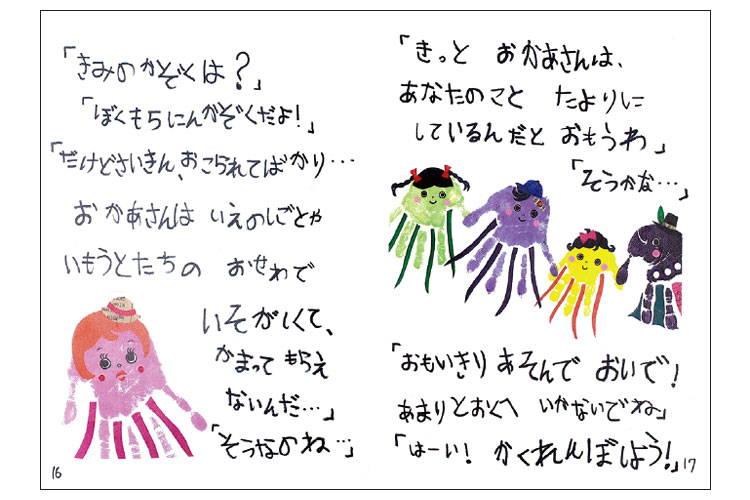 「きみのかぞくは?」
「ぼくも5にんかぞくだよ!」
「だけどさいきん、おこられてばかり…
おかあさんは いえのしごとや
いもうとたちの おせわで
いそがしくて、
かまって もらえ
ないんだ…」
「そうなのね…」
16
「きっと おかあさんは、
あなたのこと たよりに
しているんだと おもうわ」
「そうかな…」
「おもいきり あそんで おいで!
あまりとおくへ いかないでね」
「はーい! かくれんぼしよう!」
17